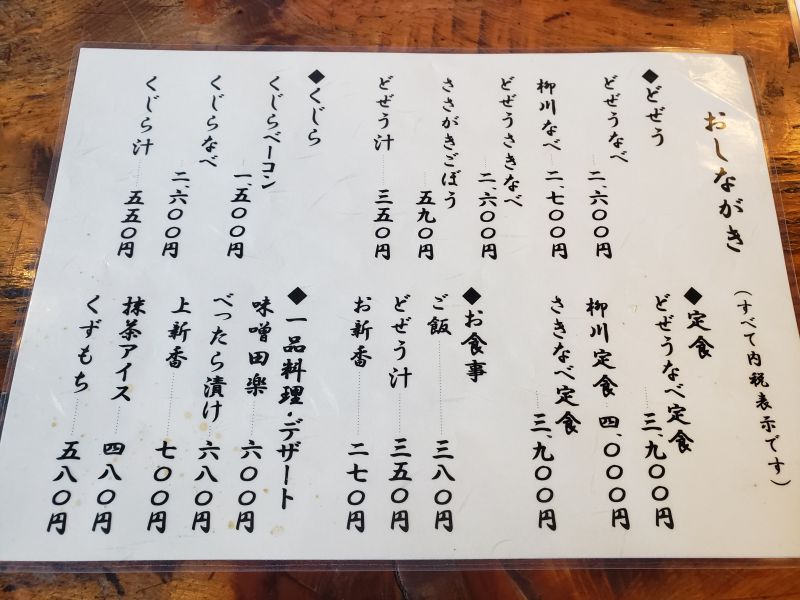 おしながき
（すべて内税表示です）
◆どぜう
どぜうなべ……二、六〇〇円
柳川なべ……二、七〇〇円
どぜうさきなべ……二、六〇〇円
ささがきごぼう……五九〇円
どぜう汁……三五〇円
◆くじら
くじらベーコン……一、五〇〇円
くじらなべ……二、六〇〇円
くじら汁……五五〇円
◆定食
どぜうなべ定食……三、九〇〇円
柳川定食 四、〇〇〇円
さきなべ定食……三、九〇〇円
◆お食事
ご飯……三八〇円
どぜう汁……三五〇円
お新香……二七〇円
◆一品料理・デザート
味噌田楽……六〇〇円
べったら漬け……六八〇円
上新香……七〇〇円
抹茶アイス……四八〇円
くずもち……五八〇円